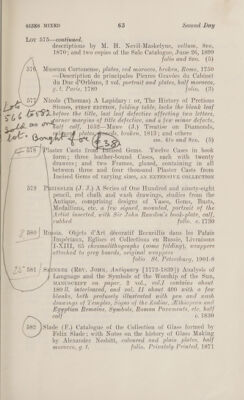 SIZES MIXED 63 Second Day
LOT 575—continued.
descriptions by M. H. Nevil-Maskelyne, vellum, 8vo,
1870; and two copies of the Sale Catalogue, June 26, 1899
folio and 8vo. (5)
576 Museum Cortonense, plates, red morocco, broken, Rome, 1750
—Description de principales Pierres Gravées du Cabinet
du Duc d'Orléans, 2 vol. portrait and plates, half morocco,
g. t. Paris, 1780 folio. (3)
577 Nicols (Thomas) A Lapidary: or, The History of Pretious
Stones, FIRST EDITION, folding table, lacks the blank leaf
before the title, last leaf defective affecting two letters,
corner margins of title defective, and a few minor defects,
half calf, 1652—Mawe (J.) Treatise on Diamonds,
plates, broken, 1813; and others
sm. 4to and 8vo. (5)
Lot
566 & 582
Sold as one
lot. Bought for £38
578 Plaster Casts from Incised Gems. Twelve Cases in book
form; three leather-bound Cases, each with twenty
drawers; and two Frames, glazed, containing in all
between three and four thousand Plaster Casts from
Incised Gems of varying sizes, AN EXTENSIVE COLLECTION
579 (J. J.) A Series of One Hundred and ninety-eight
pencil, red chalk and wash drawings, studies from the
Antique, comprising designs of Vases, Gems, Busts,
Medallions, etc. a few signed, mounted, portrait of the
Artist inserted, with Sir John Rawdon's book-plate, calf,
rubbed folio. c. 1739
580 Russia. Objets d'Art décoratif Recueillis dans les Palais
Impériaux, Eglises et Collections en Russie, Livraisons
I-XIII, 155 chromolithographs (some folding), wrappers
attached to grey boards, original wrappers
folio St. Petersburg, 1901-8
581 (REV. JOHN, Antiquary [1773-1839]) Analysis of
Language and the Symbols of the Worship of the Sun,
MANUSCRIPT ON PAPER, 2 vol., vol. I contains about
180 ll. interleaved, and vol. II about 400 with a few
blanks, both profusely illustrated with pen and wash
drawings of Temples, Signs of the Zodiac, Æthiopian and
Egyptian Remains, Symbols, Roman Pavements, etc. half
calf c. 1830
582 Slade (F.) Catalogue of the Collection of Glass formed by
Felix Slade; with Notes on the history of Glass Making
by Alexander Nesbitt, coloured and plain plates, half
morocco, g. t. folio. Privately Printed, 1871